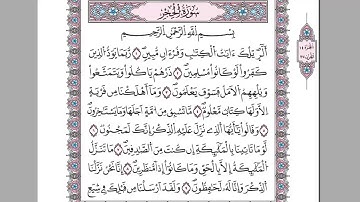 سُورَةُ الْحِجْرِ
بِسْمِ اللَّهِ الرَّحْمَٰنِ الرَّحِيمِ
الٓر ۚ تِلْكَ ءَايَٰتُ الْكِتَٰبِ وَقُرْءَانٍ مُّبِينٍ ١ رُّبَمَا يَوَدُّ الَّذِينَ
كَفَرُوا لَوْ كَانُوا مُسْلِمِينَ ٢ ذَرْهُمْ يَأْكُلُوا وَيَتَمَتَّعُوا
وَيُلْهِهِمُ الْأَمَلُ ۖ فَسَوْفَ يَعْلَمُونَ ٣ وَمَا أَهْلَكْنَا مِن قَرْيَةٍ
إِلَّا وَلَهَا كِتَابٌ مَّعْلُومٌ ٤ مَّا تَسْبِقُ مِنْ أُمَّةٍ أَجَلَهَا وَمَا يَسْتَـْٔخِرُونَ ٥
وَقَالُوا يَٰأَيُّهَا الَّذِي نُزِّلَ عَلَيْهِ الذِّكْرُ إِنَّكَ لَمَجْنُونٌ ٦
لَّوْ مَا تَأْتِينَا بِالْمَلَٰئِكَةِ إِن كُنتَ مِنَ الصَّٰدِقِينَ ٧ مَا نُنَزِّلُ
الْمَلَٰئِكَةَ إِلَّا بِالْحَقِّ وَمَا كَانُوا إِذًا مُّنظَرِينَ ٨ إِنَّا نَحْنُ نَزَّلْنَا
الذِّكْرَ وَإِنَّا لَهُ لَحَٰفِظُونَ ٩ وَلَقَدْ أَرْسَلْنَا مِن قَبْلِكَ فِي شِيَعِ